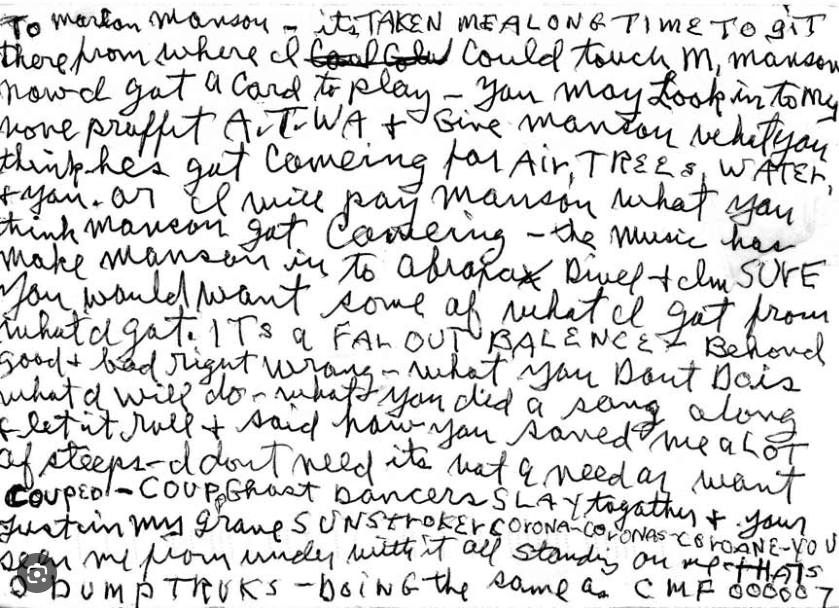 To marlon manson – its TAKEN ME A LONG TIME TO GIT
there from where I Could touch M, manson
now I gat a Card to play – You may look in to my
none proffit A.T.W.A + Give manson what you
think hes gat Comeing for Air, TREES, WATER,
+ you. or I will pay manson what you
think manson gat Comeing – the music has
make manson in to abraxax Divel + Im SURE
You would want some of what I gat from
what I gat. ITs a FAR OUT BALENCE – Behond
good + bad right wrong – what you Dont Do is
what I will do – what you did a song along
& let it roll + said how you saved me a LOT
of steeps – I dont need it its not a need or want
COUPED – COUP Ghost Dancers SLAY togather + your
Just in my grave SUNStROKER CORONA-CORONAS-COROANE-YOU
seen me from under with it all standing on me THATS
DUMP TRUKS – DOING the same as CMF 000007